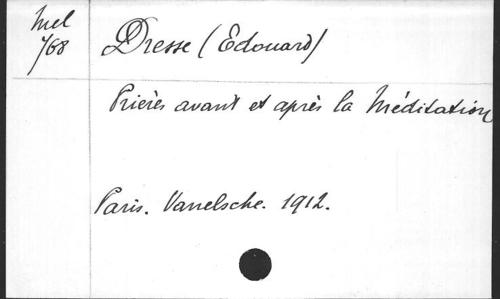 Mel
768
Dresse (Edouard)
Prières avant et après la Méditation
Paris. Vanelsche. 1912.